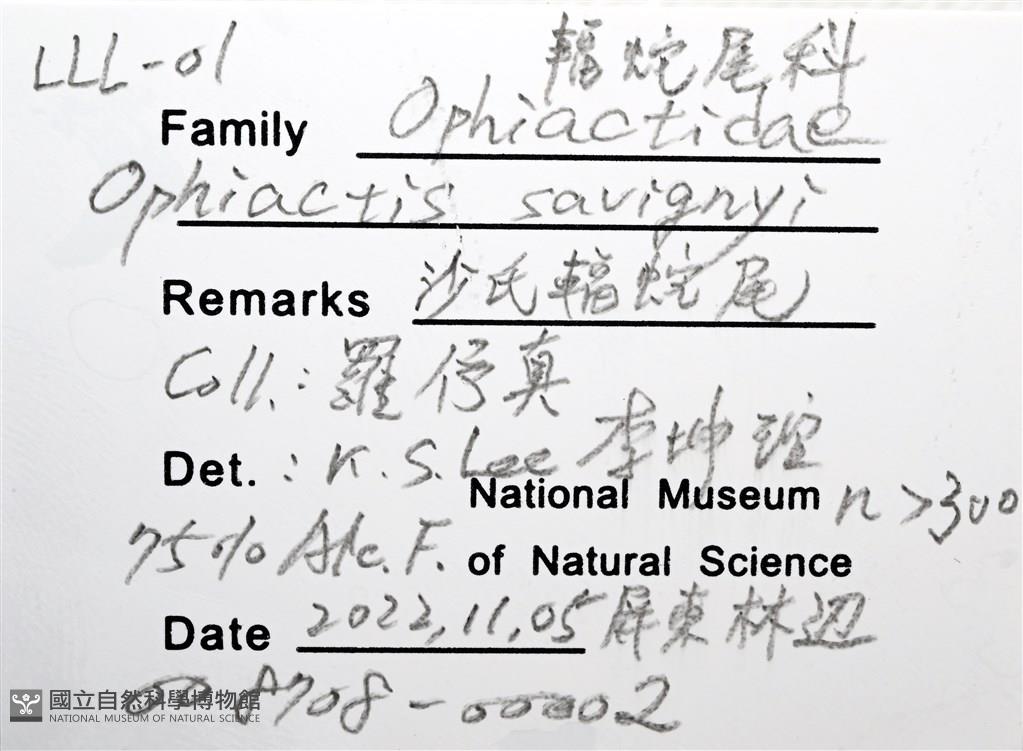 LLL-01
輻蛇尾科
Family Ophiactidae
Ophiactis savignyi
Remarks 沙氏輻蛇尾
Coll.: 羅伃真
Det.: K.S. Lee 李坤瑄
National Museum n >300
75% Alc. F. of Natural Science
Date 2022,11,05 屏東林辺
8708-00002
國立自然科學博物館
NATIONAL MUSEUM OF NATURAL SCIENCE